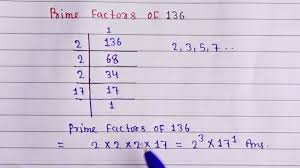 Prime Factors of 136
1
2 136 2, 3, 5, 7 ..
2 68
2 34
17 17
1
Prime Factors of 136
= 2 × 2 × 2 × 17 = 2³ × 17¹ Ans.